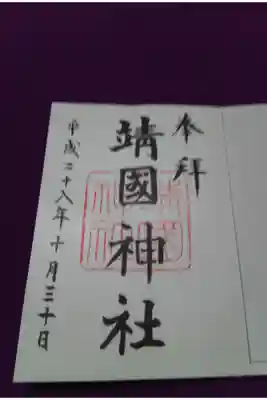 奉拜
靖國神社
平成二十八年十月三十日